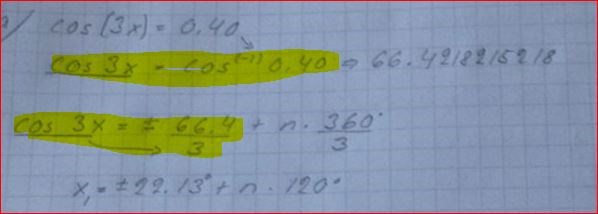 a) cos(3x) = 0.40
cos 3x = cos^(-1) 0.40 ⇒ 66.4218215218
cos 3x = ± 66.4/3 + n · 360°/3
x₁ = ±22.13° + n · 120°